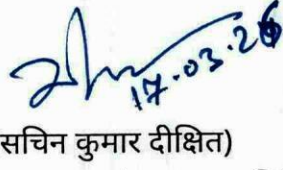 17.03.26
सचिन कुमार दीक्षित)